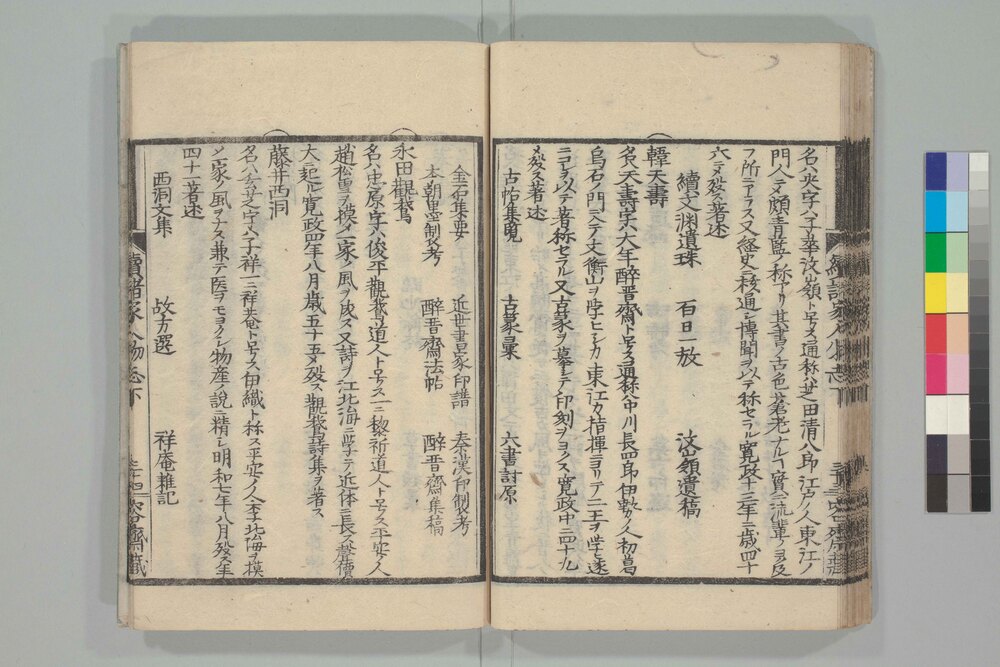 名ハ央字ハ子華汶嶺ト号ス通称ハ芝田清八郎江戸ノ人東江ノ
門人ニメ頗青藍ノ称アリ其書ノ古色蒼老ナルフ實ニ流輩ノヨク及
フ所ニアラス又経史ニ核通シ博聞ヲ以テ称セラル寛政十三年ニ歳四十
六ニメ殁ス著述
續文渊遺珠　石日一放　汶嶺遺稿
韓天壽
名天壽字六年醉晋齋ト号ス通称中川長四郎伊勢ノ人初葛
烏石ノ門ニ入テ文衡山ヲ学ヒシカ東江カ指揮ニヨリテ二王ヲ学ヒ遂
ニコヲ以テ著称セラル又古篆ヲ摹シテ印刻ヲヨクス寛政中ニ四十九
ニメ殁ス著述
古帖集覧　古篆彙　六書討原
金石集要　近世書家印譜　秦漢印制考
本朝印制考　醉晋齋法帖　醉晋齋集稿
永田觀鵞
名ハ忠原字ハ俊平觀鵞道人ト号ス一ニ黎祈道人ト号ス平安ノ人
趙松雪ヲ模メ一家ノ風ヲ成ス又詩ヲ江北海ニ学テ近体ニ長ス聲價
大ニ起ル寛政四年八月歳五十五ニ殁ス觀鵞詩集ヲ著ス
藤井西洞
名ハ字ハ子祥一ニ祥菴ト号ス伊織ト称ス平安ノ人李北海ヲ摸
メ一家ノ風ヲナス兼テ医ヲモヨクシ物産ノ說ニ精シ明和七年八月殁ス年
四十一著述
西洞文集　故方選　祥庵雜記
續諸家人物志下